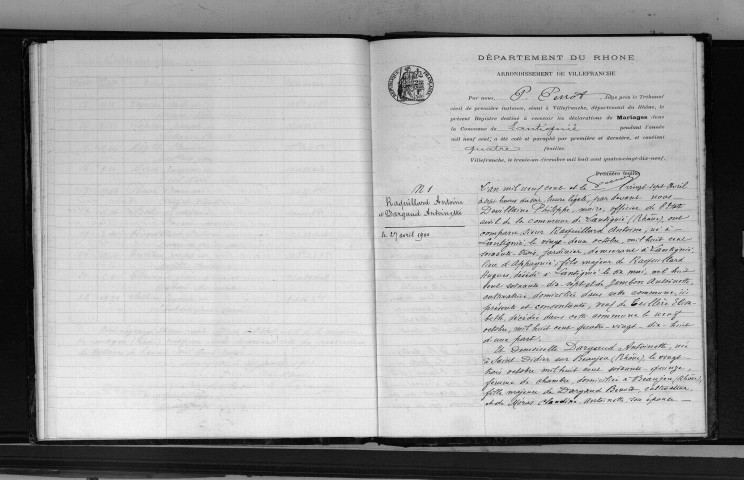 DÉPARTEMENT DU RHONE
ARRONDISSEMENT DE VILLEFRANCHE
Par nous, P. Perrot Juge près le Tribunal
civil de première instance, séant à Villefranche, département du Rhône, le
présent Registre destiné à recevoir les déclarations de Mariages dans
la Commune de Lantignié pendant l'année
mil neuf cent, a été coté et paraphé par première et dernière, et contient
quatre feuilles
Villefranche, le trente-un décembre mil huit cent quatre-vingt-dix-neuf.
Première feuille
N 1
Raquillard Antoine
& Dargaud Antoinette
le 27 avril 1900
L'an mil neuf cent et le vingt sept Avril
à heures du soir, heure légale, par devant nous
Devillaine Philippe, maire, officier de l'Etat
civil de la commune de Lantignié (Rhône), ont
comparu sieur Raquillard Antoine, né à
Lantignié le vingt-deux octobre, mil huit cent
soixante-trois, jardinier, demeurant à Lantignié
lieu d'Appagnié, fils majeur de Raquillard
Hugues, décédé à Lantignié le dix mai, mil huit
cent soixante-dix sept et de Jambon Antoinette,
cultivatrice domiciliée dans cette commune, ici
présente et consentante, veuf de Teillère Elisa-
beth, décédée dans cette commune le neuf
octobre, mil huit cent quatre-vingt-dix-huit
d'une part;
Et Demoiselle Dargaud Antoinette, née
à Saint Didier sur Beaujeu (Rhône), le vingt-
trois octobre mil huit cent soixante-quinze,
femme de chambre, domiciliée à Beaujeu (Rhône),
fille majeure de Dargaud Benoit, cultivateur,
et de Claudine Antoinette, son épouse